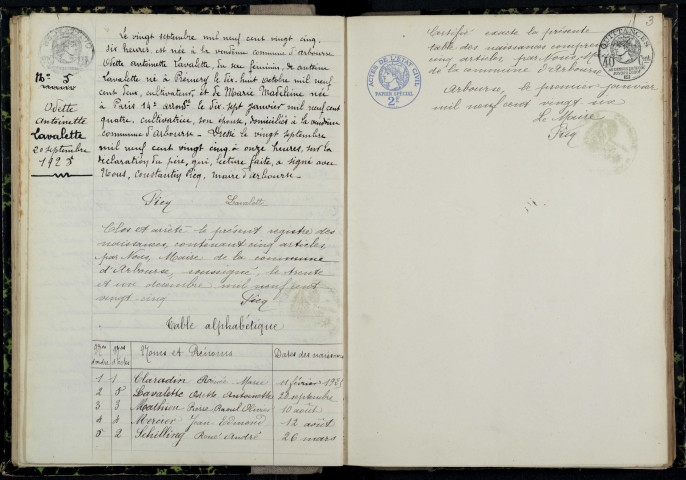 N° 5
Odette
Antoinette
Lavalette
20 septembre
1925
Le vingt septembre mil neuf cent vingt cinq,
six heures, est née à la vendême commune d'Arbourse
Odette Antoinette Lavalette, du sexe féminin, de Antoine
Lavalette né à Prémery le dix huit octobre mil neuf
cent deux, cultivateur, et de Marie Madeleine née
à Paris 14e arrondt le dix sept janvier mil neuf cent
quatre, cultivatrice, son épouse, domiciliés à la vendême
commune d'Arbourse. Dressé le vingt septembre
mil neuf cent vingt cinq à onze heures, sur la
déclaration du père, qui, lecture faite, a signé avec
Nous, Constantin Picq, maire d'Arbourse.
Picq Lavalette
Clos et arrêté le présent registre des
naissances, contenant cinq articles
par Nous, Maire de la commune
d'Arbourse, soussigné, le trente
et un décembre mil neuf cent
vingt cinq
Picq
Table alphabétique
Nos d'ordre Nos d'actes Noms et Prénoms Dates des naissances
1 1 Claradin Marie 11 février 1925
2 5 Lavalette Odette Antoinette 20 septembre
3 3 Mathieu Pierre Raoul 10 août
4 4 Mercier Jean Edmond 12 août
5 2 Schilling René André 26 mars
3
Certifié exacte la présente
table des naissances comprenant
cinq articles par Nous, Maire
de la commune d'Arbourse
Arbourse, le premier janvier
mil neuf cent vingt six
Le Maire
Picq
ACTES DE L'ETAT CIVIL
PAPIER SPECIAL
2F
QUITTANCES